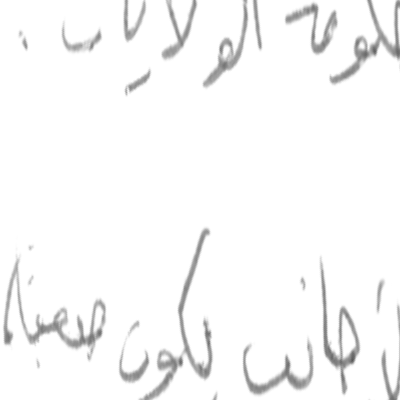 حكومة الولايات .
الأجانب يكون صعبة